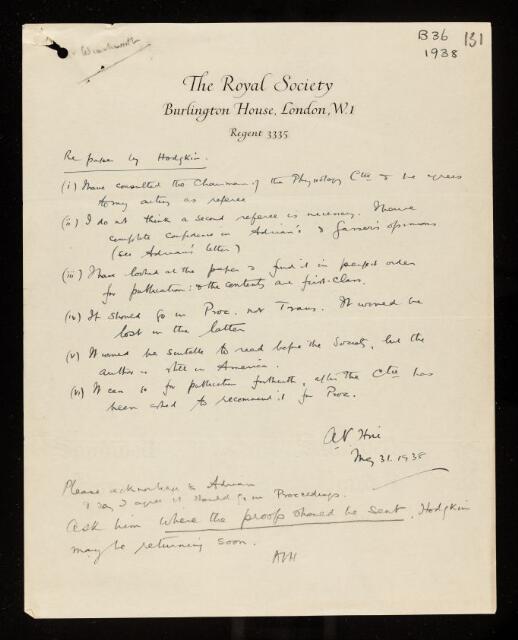 B36 131
1938
Winckworth
The Royal Society
Burlington House, London, W.1
Regent 3335
Re paper by Hodgkin.
(i) I have consulted the Chairman of the Physiology Ctee & he agrees
to my acting as referee
(ii) I do not think a second referee is necessary. I have
complete confidence in Adrian's & Gasser's opinions
(see Adrian's letter)
(iii) I have looked at the paper & find it in perfect order
for publication: & the contents are first-class.
(iv) It should go in Proc. not Trans. It would be
lost in the latter
(v) It would be suitable to read before the Society, but the
author is still in America.
(vi) It can go for publication forthwith, after the Ctee has
been asked to recommend it for Proc.
AV Hill
May 31. 1938
Please acknowledge to Adrian
& say I agree it should go in Proceedings.
Ask him where the proofs should be sent, Hodgkin
may be returning soon.
AVH